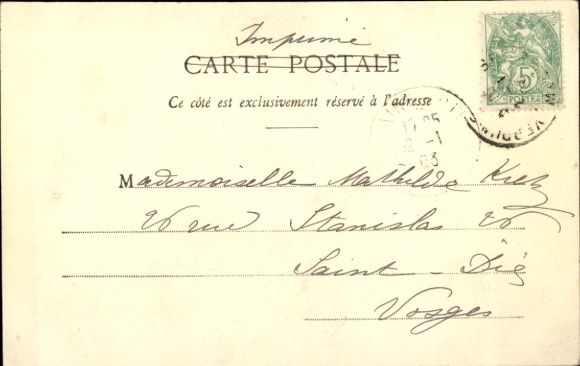 Imprimé
CARTE POSTALE
5c
POSTES
Ce côté est exclusivement réservé à l'adresse
17 25
2 -1
03
Mademoiselle Mathilde
26 rue Stanislas 26
Saint-Dié
Vosges